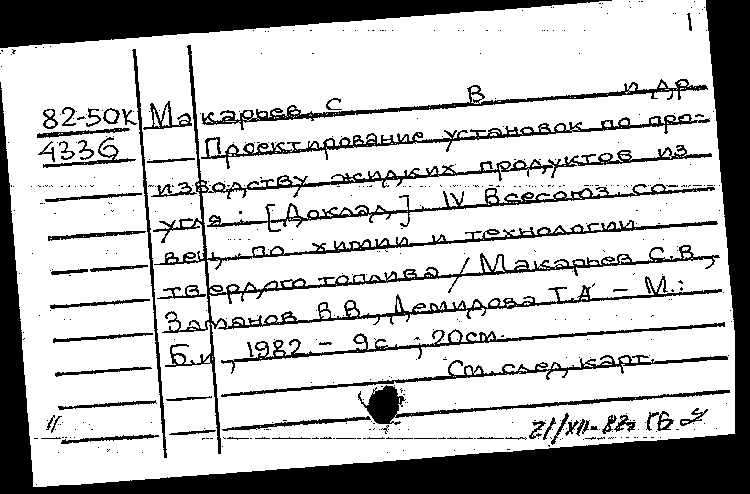 1
82-50к Макарьев, С В и др
4336 Проектирование установок по про-
изводству жидких продуктов из
угля : [Доклад]. IV Всесоюз. со-
вещ. по химии и технологии
твердого топлива / Макарьев С.В.,
Заманов В.В., Демидова Т.А - М.:
Б.и, 1982. - 9с. ; 20см.
См. след, карт.
21/XII-82г